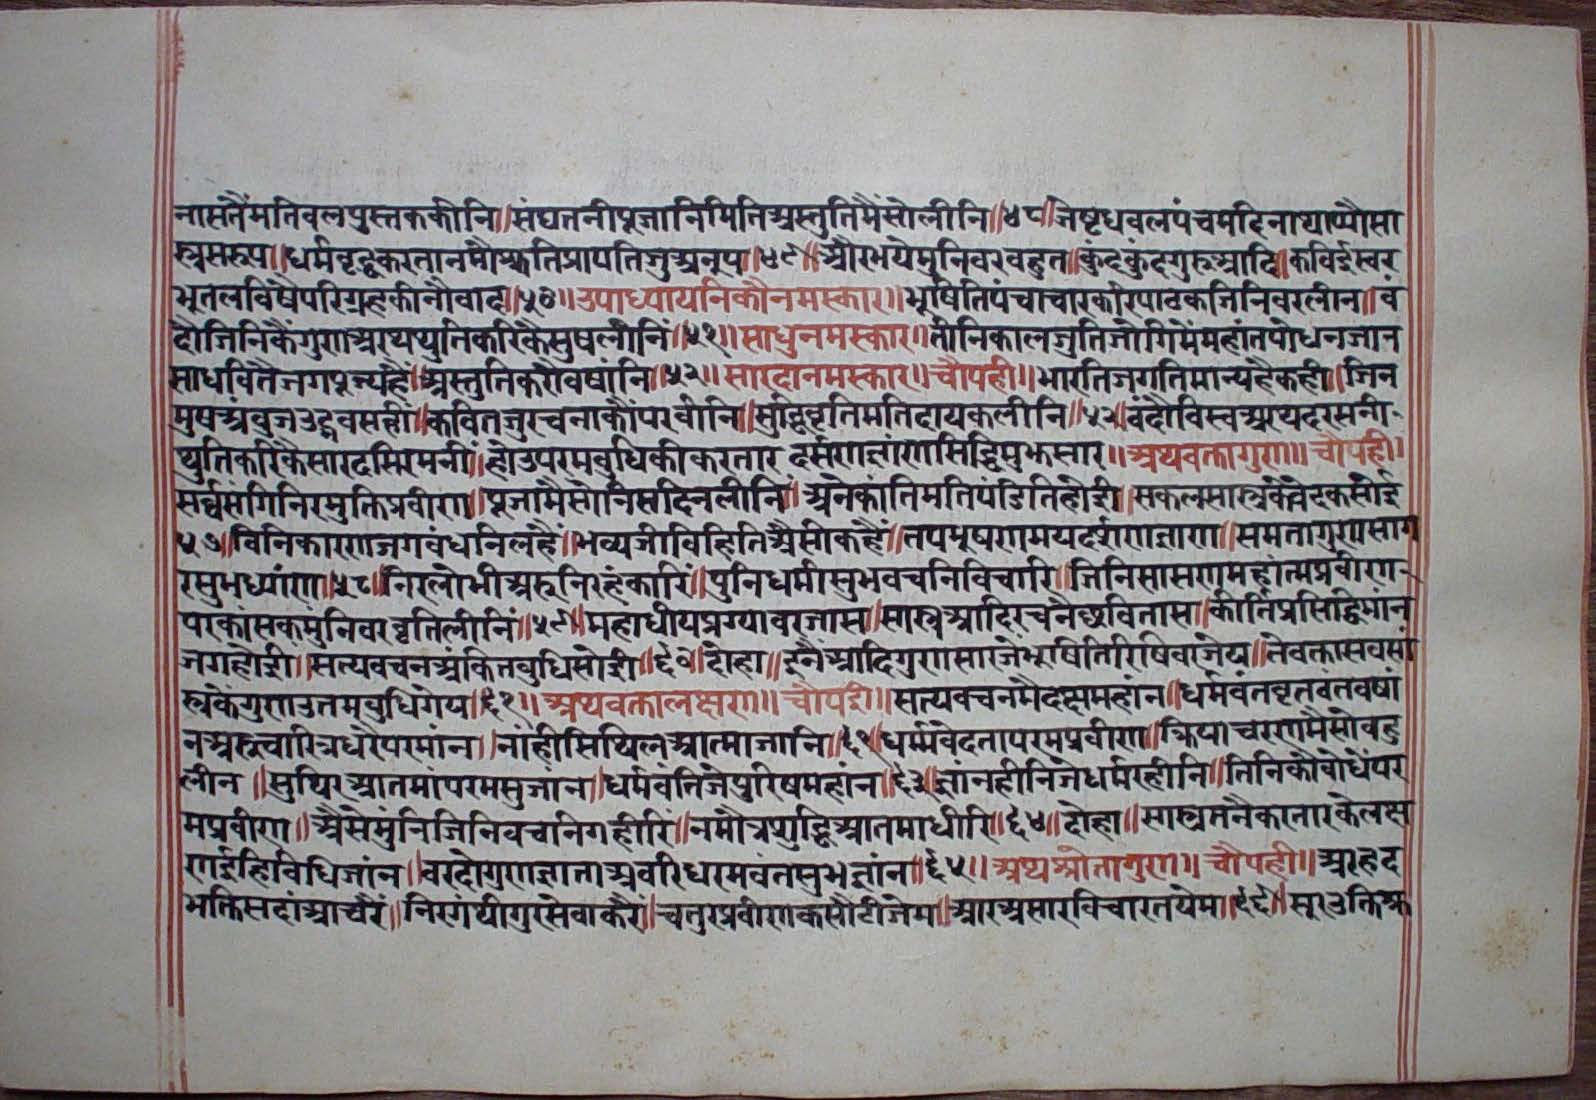 नासतैंमतिवलपुस्तककीनि॥संघतनीपूजानिमितिअस्तुतिमैंसोलीनि॥४८॥जेष्टधवलपंचमदिनाथाप्यौसा
स्त्रसरूप॥धर्मवृद्धकरतानमौंप्रापतिजुअनूप॥४९॥औरभयेमुनिवरवहुत॥कुंदकुंदगुरुआदि॥कविईस्वर
भूतलविषैपरिग्रहकीनौवाद॥५०॥उपाध्यायनिकौनमस्कार॥भूषितिपंचाचारकरिपाठकजिनिवरलीन॥वं
दौजिनिकैंगुरणअरथथुतिकरिकैसुषलीनि॥५१॥साधुनमस्कार॥तीनिकालजुतिजोगिमेंमहांतपोधनजान
साधवितैजगपूज्यहैं॥अस्तुतिकरौवषांनि॥५२॥सारदानमस्कार॥चौपही॥भारतिजगतिमान्यहैकही॥जिन
मुषअंवुजउद्भवसही॥कवितजुरचनाकौंपरवीनि॥सुद्धिवृतिमतिदायकलीनि॥५३॥वंदौविस्वअरथदरसनी
थुतिकरिकैसारदसिरमनी॥होउपरमवुधिकीकरतार दर्सणज्ञांणसिद्धिमुझसार॥अथवक्तागुरण॥चौपही॥
सर्वसंगिनिरमुक्तिप्रवीरण॥पूजामैसोनिसदिनलीनि॥अनेकांतिमतिपंडितिहोई॥सकलसास्त्रवेदकसोई
५७॥विनिकारणजगवंधनिलहैं॥भव्यजीवहितिऔसीकहैं॥तपभूषणमयदर्शणज्ञाण॥समतागुणसाग
रसुभध्यांण॥५८॥निरलोभीअरुनिरहंकारि॥पुनिधर्मीसुभवचनिविचारि॥जिनिसासणमहांत्मप्रवीण
परकांसकमुंनिवरवृतिलीनिं॥५९॥महाधीयप्रग्यावरजास॥सास्त्रआदिरचनै॥कीर्तिप्रसिद्धिमांन
जगहोई॥सत्यवचनअंकितवुधिसोई॥६०॥दोहा॥इनैआदिगुणसारजेभूषितिरिषिवरजेय॥तेवक्तासवसा
स्त्रकेगुणउतमवुधिगेय॥६१॥अथवक्तालक्षरण॥चौपई॥सत्यवचनमैदक्षमहांन॥धर्मवंतवृतवंतवषां
नअरुचारित्रधरैपरमांन॥नांहीसिथिलआत्माजानि॥६२॥धर्म्मवेदतापरमप्रवीरण॥क्रियाचरणमैसोवहु
लीन॥सुथिरआतमांपरमसुजांन॥धर्मवंतिजेपुरिषमहांन॥६३॥ज्ञांनहीनिजेधर्मरहीनि॥तिनिकौवोधेंपर
मप्रवीरण॥औसेमुंनिजिनिवचनिगहीरि॥नमौआतमाधीरि॥६४॥दोहा॥सास्त्रतनैकरतारकेलक्ष
णईहिविधिजांन॥वरदोगुणज्ञाताअवरिधरमवंतसुभज्ञांन॥६५॥अथश्रोतागुरण॥चौपही॥अरहद
भक्तिसदांआचरैं॥निरगंथीगुरसेवाकरैं॥चतुरप्रवीणकसौटीजेम॥आरअसारविचारतयेम॥६६॥सूरउक्ति